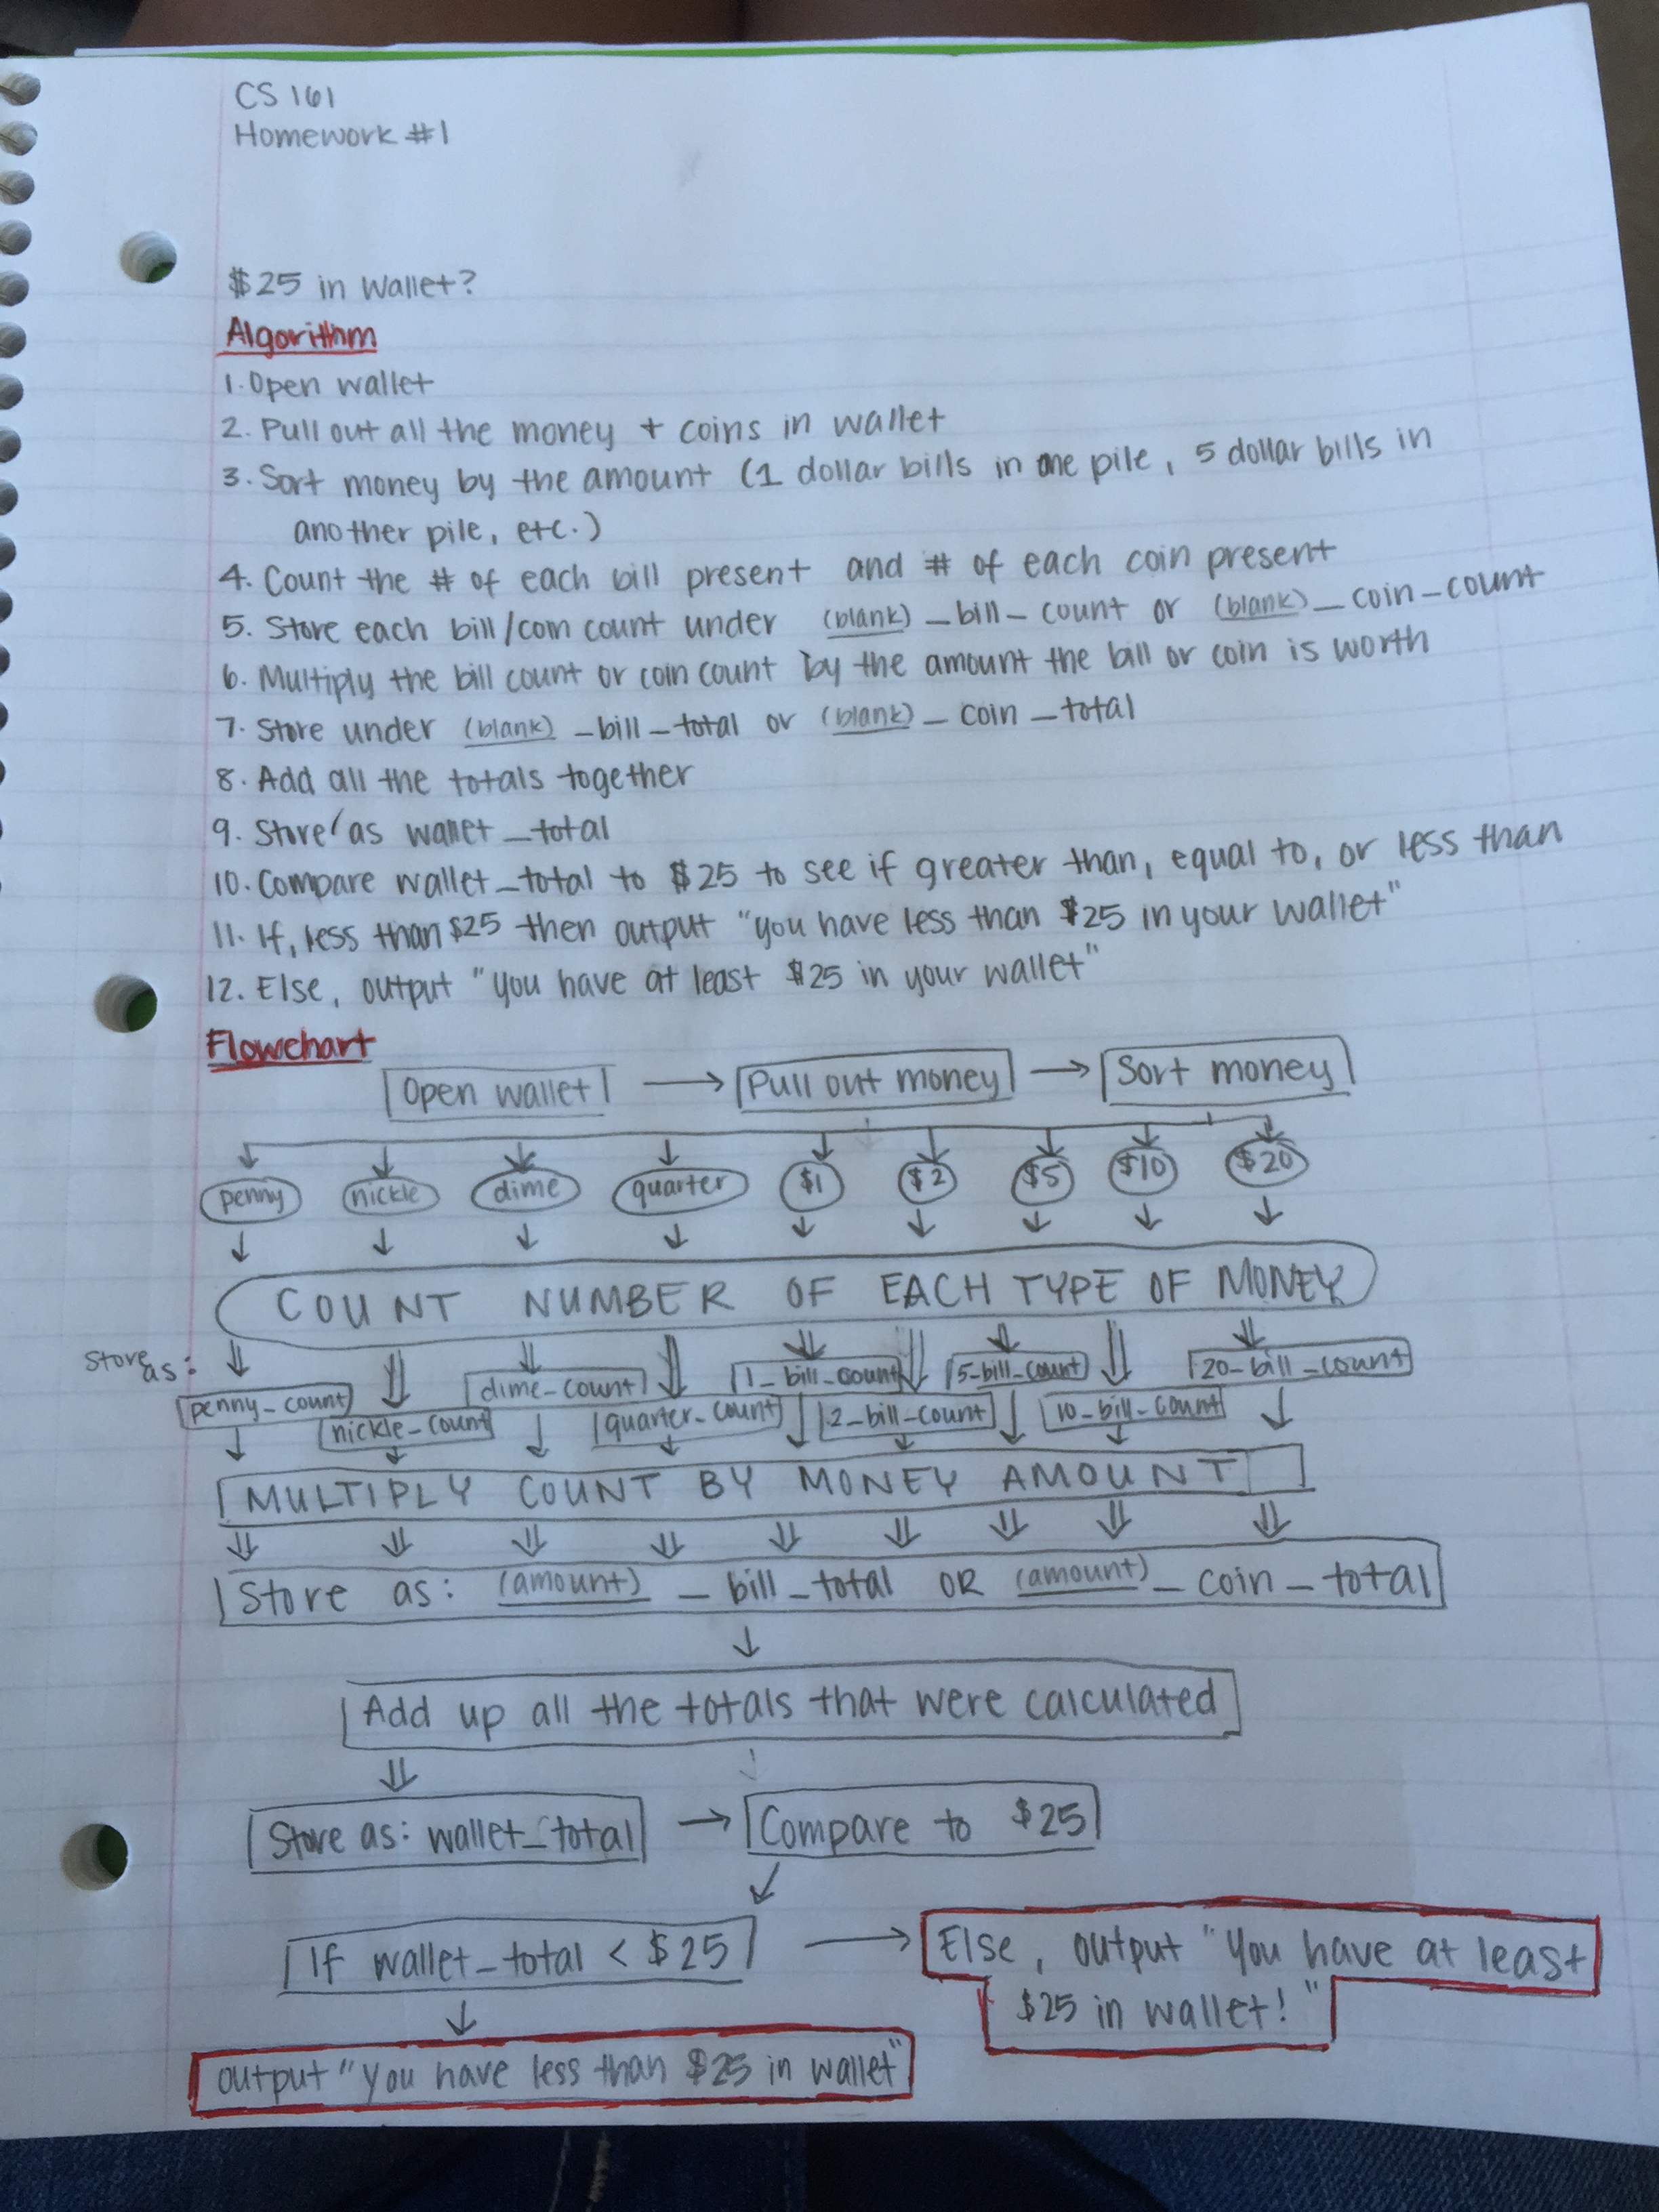 CS 161
Homework #1
$25 in wallet?
Algorithm
1. Open wallet
2. Pull out all the money + coins in wallet
3. Sort money by the amount (1 dollar bills in one pile, 5 dollar bills in
another pile, etc.)
4. Count the # of each bill present and # of each coin present
5. Store each bill/coin count under (blank)_bill_count or (blank)_coin_count
6. Multiply the bill count or coin count by the amount the bill or coin is worth
7. Store under (blank)_bill_total or (blank)_coin_total
8. Add all the totals together
9. Store as wallet_total
10. Compare wallet_total to $25 to see if greater than, equal to, or less than
11. If, less than $25 then output "you have less than $25 in your wallet"
12. Else, output "you have at least $25 in your wallet"
Flowchart
Open wallet → Pull out money → Sort money
penny nickle dime quarter $1 $2 $5 $10 $20
COUNT NUMBER OF EACH TYPE OF MONEY
store as:
penny_count nickle_count dime_count quarter_count 1_bill_count 2_bill_count 5_bill_count 10_bill_count 20_bill_count
MULTIPLY COUNT BY MONEY AMOUNT
Store as: (amount)_bill_total OR (amount)_coin_total
Add up all the totals that were calculated
Store as: wallet_total → Compare to $25
If wallet_total < $25 → Else, output "You have at least
$25 in wallet!"
output "you have less than $25 in wallet"